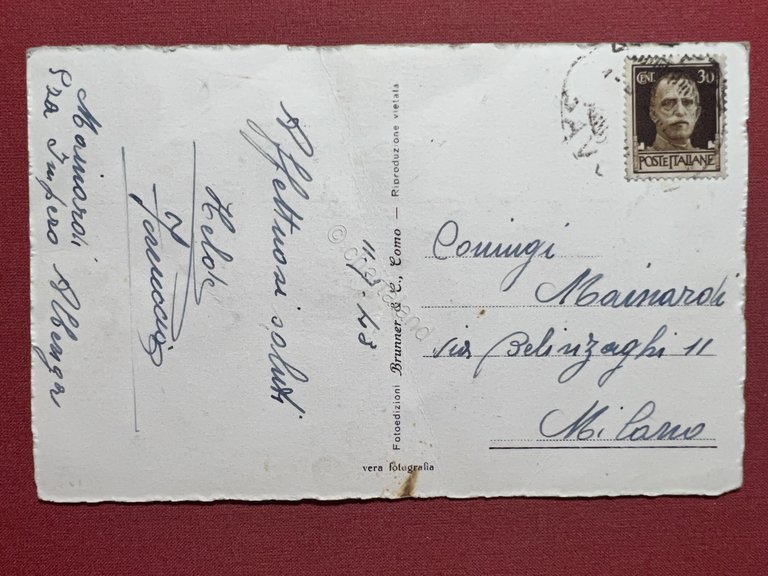 Mainardi
Pza Impero Albenga
Affettuosi saluti
11-3-43
Fotoedizioni Brunner & C., Como — Riproduzione vietata
vera fotografia
CENT. 30
POSTE ITALIANE
Coniugi
Mainardi
via Belinzaghi 11
Milano